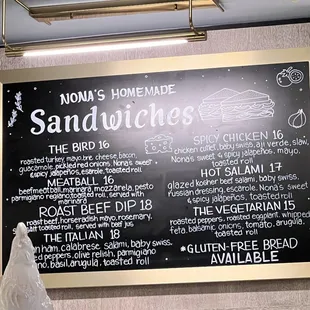 Sandwiches
NONA'S HOMEMADE
Sandwiches
THE BIRD 16
roasted turkey, mayo, brie cheese, bacon,
guacamole, pickled red onions, Nona's sweet
& spicy jalapeños, escarole, toasted roll
MEATBALL 16
beef meatball, marinara, mozzarela, pesto
parmigiano reggiano, toasted roll, served with
marinara
ROAST BEEF DIP 18
roast beef, horseradish mayo, rosemary,
salt toasted roll, served with beef jus
THE ITALIAN 18
ham, calabrese, salami, baby swiss,
peppers, olive relish, parmigiano
basil, arugula, toasted roll
SPICY CHICKEN 16
chicken cutlet, baby swiss, aji verde, slaw,
Nona's sweet & spicy jalapeños, mayo,
toasted roll
HOT SALAMI 17
glazed kosher beef salami, baby swiss,
russian dressing, escarole, Nona's sweet
& spicy jalapeños, toasted roll
THE VEGETARIAN 15
roasted peppers, roasted eggplant, whipped
feta, balsamic onions, tomato, arugula,
toasted roll
*GLUTEN-FREE BREAD
AVAILABLE